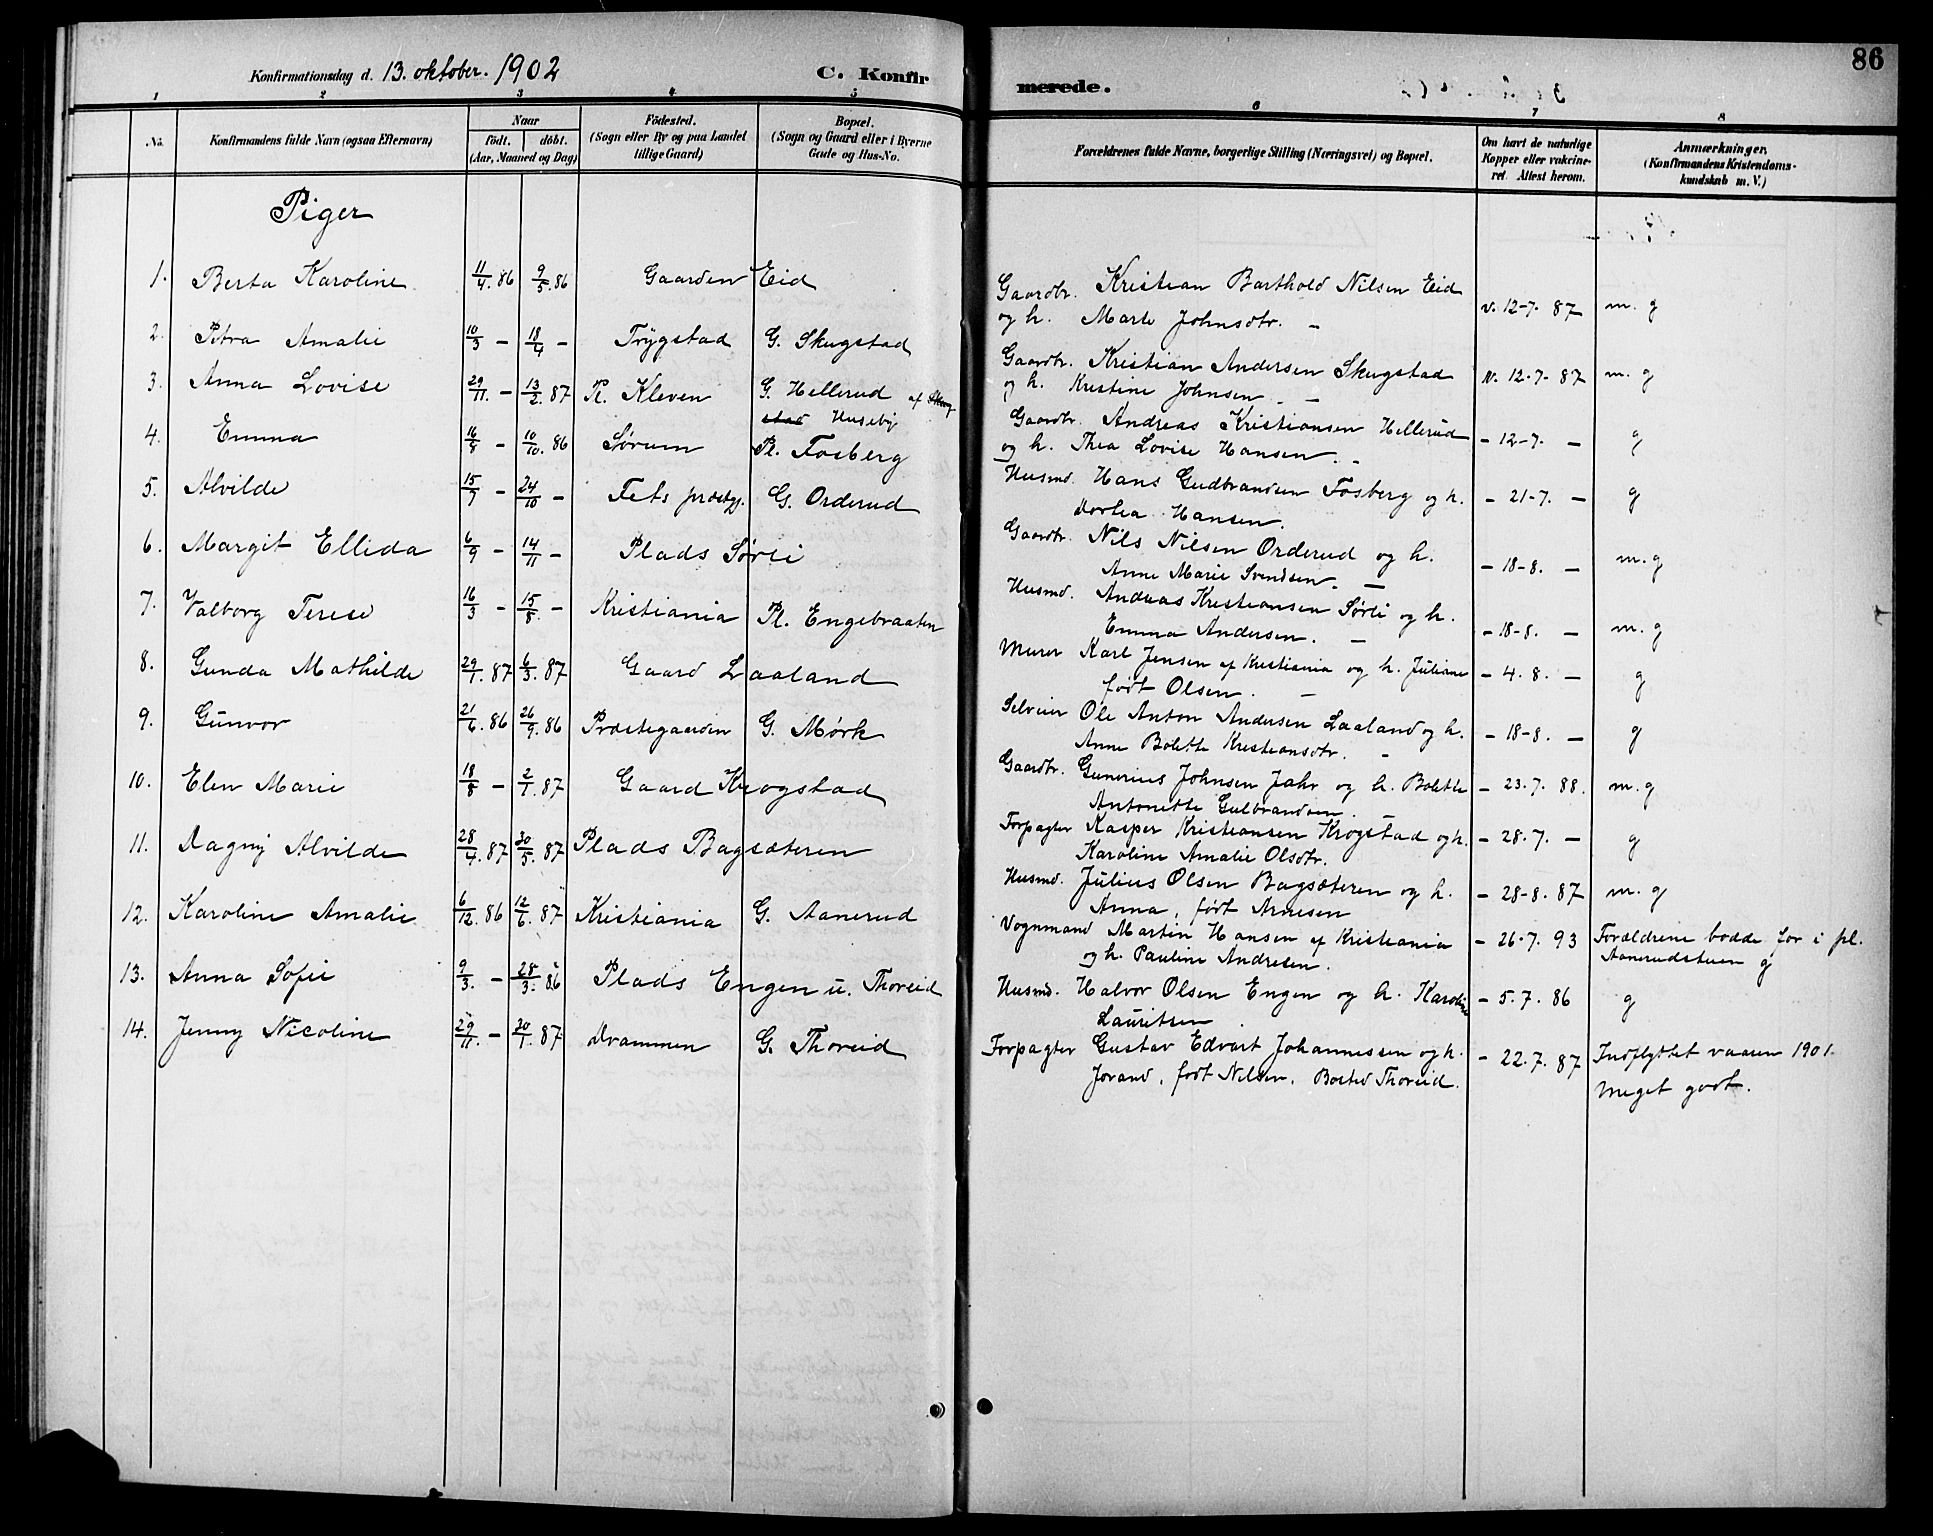 Konfirmationsdag d. 13. oktober. 1902 C. Konfir
1 2 3 4 5
No. Konfirmandens fulde Navn (ogsaa Efternavn) Naar født. døbt. (Aar, Maaned og Dag) Fødested. (Sogn eller By og paa Landet tillige Gaard) Bopæl. (Sogn og Gaard eller i Byerne Gade og Hus-No.
Piger
1. Berta Karoline 11/4. 86 9/5. 86 Gaarden Eid
2. Petra Amalie 10/3 - 18/4 - Trygstad G. Skugstad
3. Anna Lovise 29/11. - 13/2. 87 Pl. Kleven G. Hellerud af Skug
stad Huseby
4. Emma 16/8 - 10/10. 86 Sørum Pl. Fosberg
5. Alvilde 15/9 - 24/10 - Fets præstg. G. Orderud
6. Margit Ellida 6/9 - 14/11 - Plads Sørli
7. Valborg Terese 16/3 - 15/8. - Kristiania Pl. Engebraaten
8. Gunda Mathilde 29/1. 87 6/3. 87 Gaard Laaland
9. Gunvor 21/6. 86 26/9. 86 Præstegaarden G. Mørk
10. Elen Marie 18/8 - 2/1. 87 Gaard Krogstad
11. Dagny Alvilde 28/4. 87 30/5. 87 Plads Bagsæteren
12. Karoline Amalie 6/12. 86 12/6. 87 Kristiania G. Aanerud
13. Anna Sofie 9/3. - 28/3. 86 Plads Engen u. Thoreid
14. Jenny Nicoline 29/11. - 30/1. 87 Drammen G. Thoreid
86
merede.
6 7 8
Forældrenes fulde Navne, borgerlige Stilling (Næringsvei) og Bopæl. Om havt de naturlige Kopper eller vakcineret. Attest herom. Anmærkninger. (Konfirmandens Kristendomskundskab m. V.)
Gaardbr. Kristian Barthold Nilsen Eid
og h. Marte Johnsdtr. - v. 12-7. 87 m. g
Gaardbr. Kristian Andersen Skugstad
og h. Kristine Johnsen - - v. 12-7-87 m. g
Gaardbr. Andreas Kristiansen Hellerud
og h. Thea Lovise Hansen. - - 12-7. - g
Husmd. Hans Gudbrandsen Fosberg og h.
Dorthea Hansen. - 21-7. - g
Gaardbr. Nils Nilsen Orderud og h.
Anne Marie Svendsen. - - 18-8. - m. g
Husmd. Andreas Kristiansen Sørli og h.
Emma Andersen. - - 18-8. - m. g
Murer Karl Jensen af Kristiania og h. Juliane
født Olsen. - - 4. 8. - g
Selveier Ole Anton Andersen Laaland og h.
Anne Bolette Kristiansdtr. - - 18-8. - g
Gaardbr. Gunerius Johnsen Jahr og h. Bolette
Antonette Gulbrandsen. - - 23. 7. 88. m. g
Forpagter Kasper Kristiansen Krogstad og h.
Karoline Amalie Olsdtr. - 28. 7. - g
Husmd. Julius Olsen Bagsæteren og h.
Anna, født Arnesen - 28-8. 87 m. g
Vognmand Martin Hansen af Kristiania
og h. Pauline Andresen. - 26. 7. 93 Forældrene bodde før i pl.
Aanerudstuen g
Husmd. Halvor Olsen Engen og h. Karoline
Lauritsen - 5. 7. 86 g
Forpagter Gustav Edvart Johannessen og h.
Jorand, født Nilsen. Bosted Thoreid. - 22. 7. 87 Indflyttet vaaren 1901.
Meget godt.